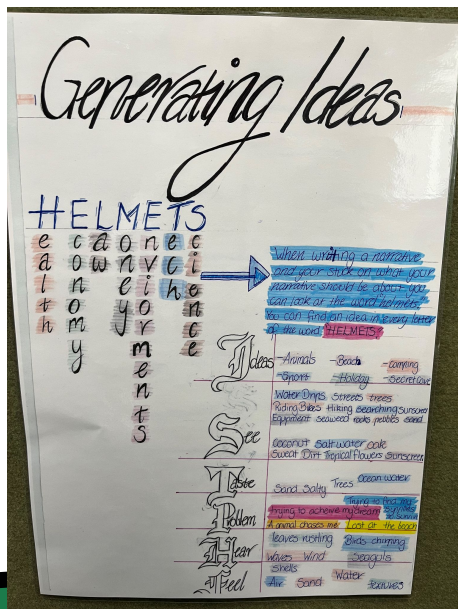 Generating Ideas
HELMETS
ealth
conomy
aw
oney
nviorments
ech
cience
When writing a narrative
and your stuck on what your
narrative should be about you
can look at the word helmets,
You can find an idea in every letter
of the word HELMETS!
Ideas
-Animals -Beach -camping
-Sport -Holiday -Secret cave
See
Water Drips Streets trees
Riding Bikes Hiking searching sunscreen
Equipment seaweed rocks pebbles sand
coconut salt water
Sweat Dirt Tropical flowers sunscreen
Taste
Sand Salty Trees ocean water
Problem
Trying to find my
Trying to acheive my dream
A animal chases me Lost at the beach
Hear
leaves rustling Birds chirping
waves Wind Seagulls
Feel
Shells
Air Sand Water textures